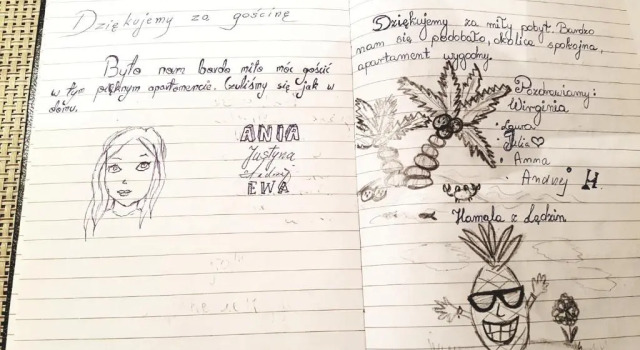 Dziękujemy za gościnę
Było nam bardo miło móc gościć
w tym pięknym apartamencie. Czuliśmy się jak w
domu.
ANIA
Justyna
EWA
Dziękujemy za miły pobyt. Bardzo
nam się podobało, okolica spokojna,
apartament wygodny.
Pozdrawiamy:
Wirginia
• Laura
• Julia
• Anna
• Andrzej H.
Hamala z Lędzin